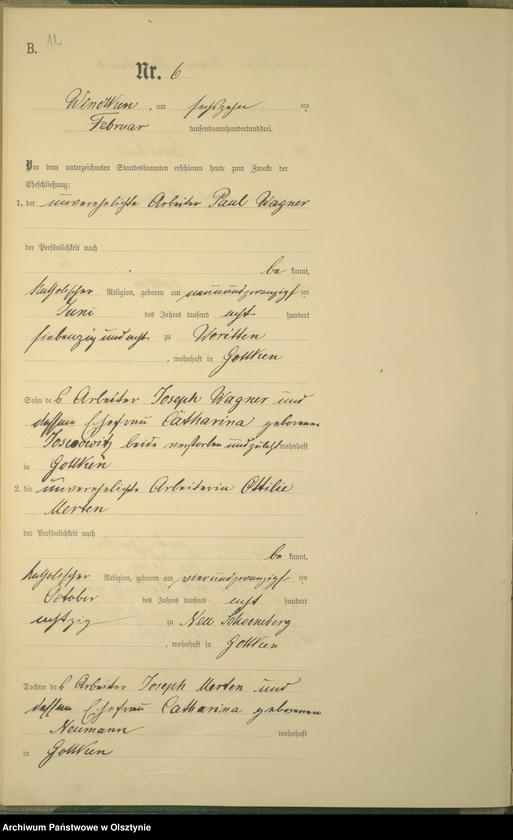 B. 12
Nr. 6
Windtken, am sechszehn ten
Februar tausendneunhundertunddrei.
Vor dem unterzeichneten Standesbeamten erschienen heute zum Zwecke der
Eheschließung:
1. der unverehelichte Arbeiter Paul Wagner
der Persönlichkeit nach
be kannt,
katholischer Religion, geboren am neunundzwanzigs ten
Juni des Jahres tausend acht hundert
siebenzig und acht zu Woritten
, wohnhaft in Gottken
Sohn des Arbeiter Joseph Wagner und
dessen Ehefrau Catharina geborenen
beide verstorben und zuletzt wohnhaft
in Gottken
2. die unverehelichte Arbeiterin Ottilie
Merten
der Persönlichkeit nach
be kannt,
katholischer Religion, geboren am vierundzwanzigs ten
October des Jahres tausend acht hundert
achtzig zu Neu Schoeneberg
, wohnhaft in Gottken
Tochter des Arbeiter Joseph Merten und
dessen Ehefrau Catharina geborenen
Neumann wohnhaft
in Gottken
Archiwum Państwowe w Olsztynie